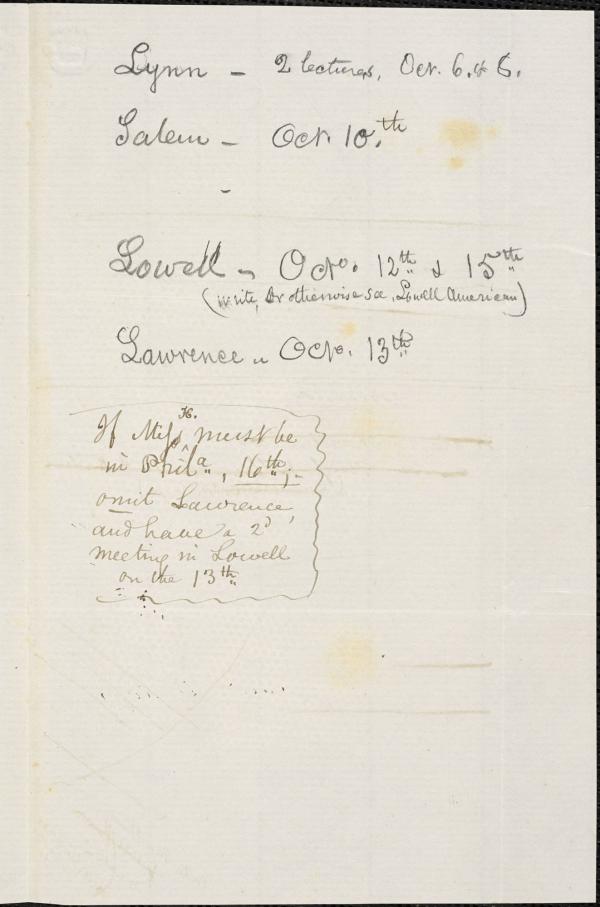 Lynn - 2 lectures, Oct. 6. & 8.
Salem - Oct. 10.th
-
Lowell - Octo. 12th & 15th
(write, or otherwise see, Lowell American)
Lawrence - Octo. 13th
H.
If Miss ^ must be
in Phila, 16th;-
omit Lawrence,
and have a 2d
meeting in Lowell
on the 13th